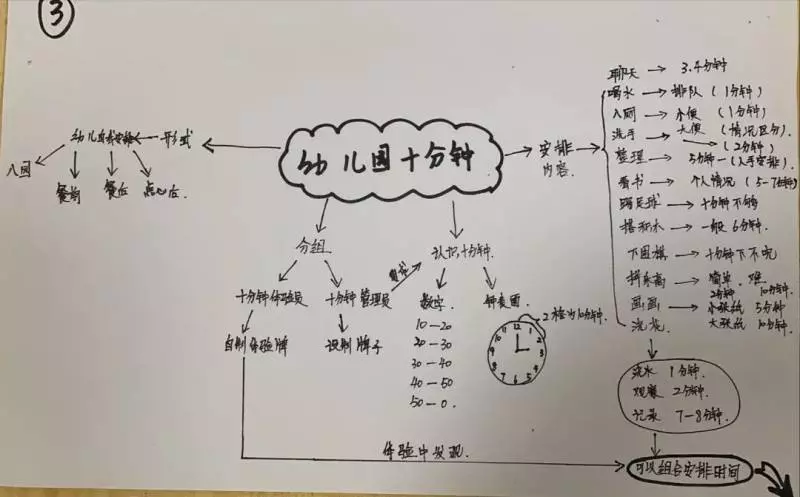 ③
幼儿园十分钟
形式
幼儿自我安排
入园
餐前
餐后
点心后.
分组
十分钟体验员
十分钟管理员
自制体验牌
设制牌子
认识十分钟.
数字
10—20
20—30
30—40
40—50
50—0.
钟表图
2格为10分钟.
12
1
2
3
4
5
6
7
8
9
10
11
安排
内容.
聊天 3.4分钟
喝水 排队(1分钟)
入厕 小便(1分钟)
洗手 大便(情况区分).
(2分钟)
整理 5分钟—(人手安排).
看书 个人情况(5-7分钟)
踢足球 十分钟不够
搭积木 一般6分钟.
下围棋 十分钟下不完
拼乐高 简单.难
2分钟 10分钟.
画画 小张纸 5分钟
浇花 大张纸 10分钟.
浇水 1分钟.
观察 2分钟.
记录 7-8分钟.
体验中发现.
可以组合安排时间